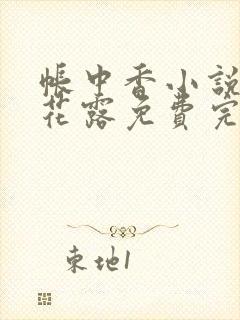 帳中香小說
花露免費完
東地1